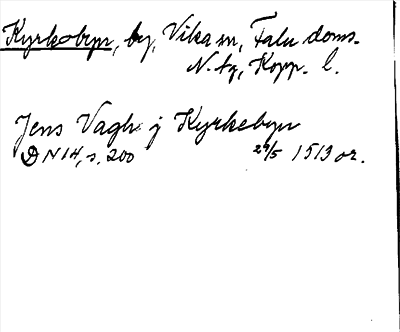 Kyrkobyn, by, Vika sn, Falu doms-
N. tg, Kopp. l.
Jens Vagh j Kyrkebyn
DN 14, s. 200 29/5 1513 or.